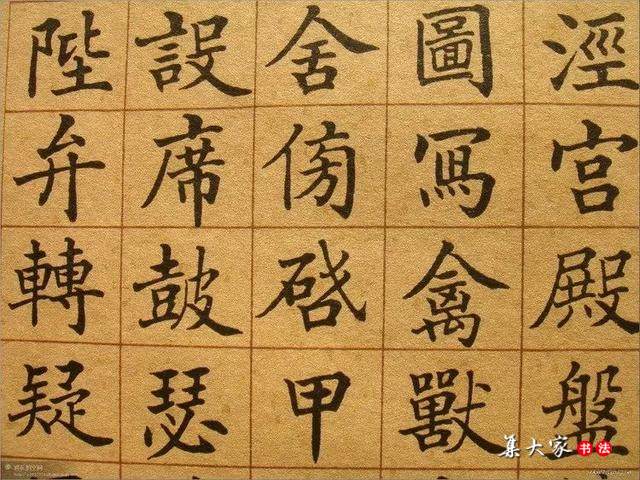 涇宮殿盤
圖寫禽獸
舍傍啓甲
設席鼓瑟
陛弁轉疑
集大家书法